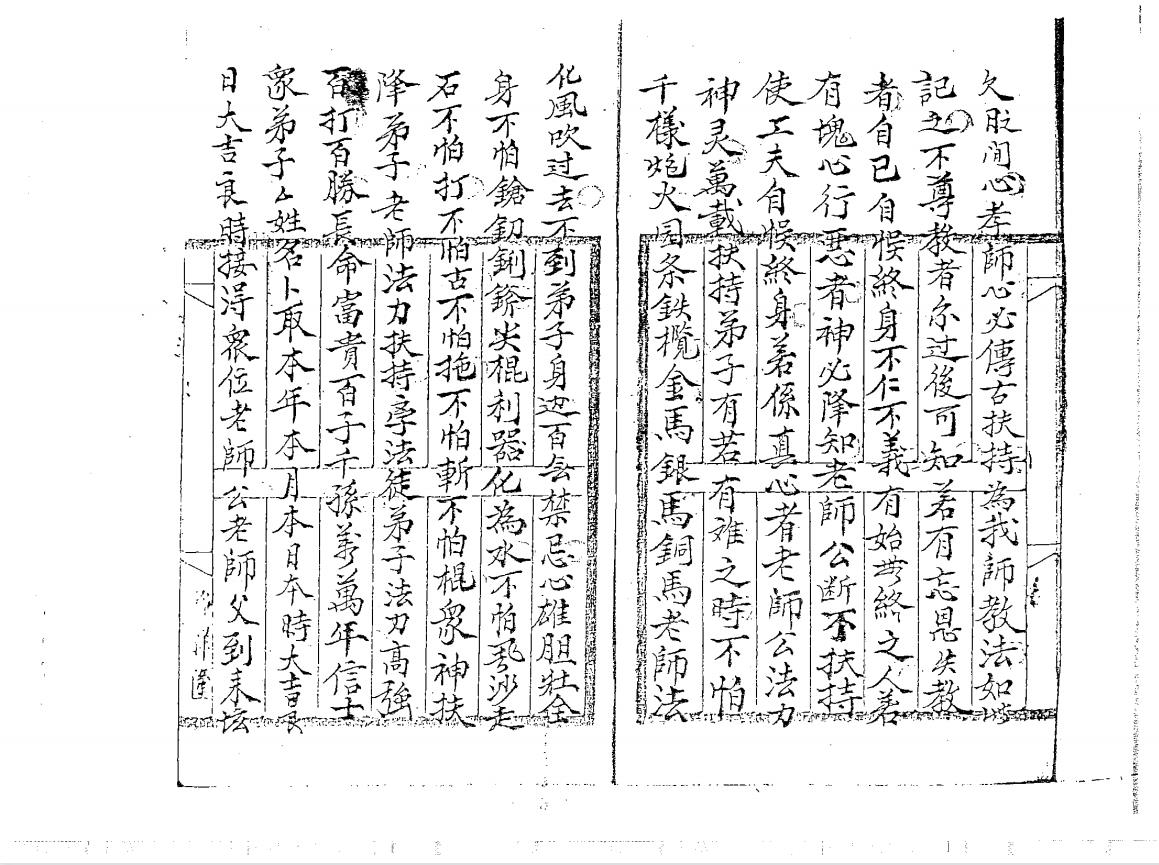 欠脏闲心孝師心必傳古扶持為我師教法如
記之不尊教者尔过後可知若有忘恩失教
者自已自悮終身不仁不義有始無終之人若
有塊心行惡者神必降知老師公断不扶持
使工夫自悮終身若係真心者老師公法力
神灵萬載扶持弟子有若有难之時不怕
千樣炮火园条鉄欖金馬銀馬銅馬老師法
化風吹过去不到弟子身边百無禁忌心雄胆壮全
身不怕鎗釰鎅尖棍利器化為水不怕飛沙走
石不怕打不怕古不怕拖不怕斬不怕棍衆神扶
降弟子老師法力扶持孝法徒弟子法力高強
百打百勝長命富貴百子千孫養萬年信士
衆弟子厶姓名卜取本年本月本日本時大吉良
日大吉良時接淂衆位老師公老師父到来坛